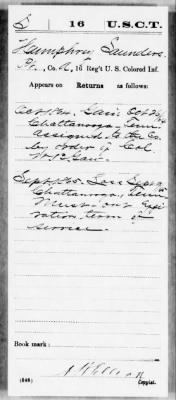 S | 16 | U.S.C.T.
Humphry Saunders
Pt., Co. A, 16 Reg't U. S. Colored Inf.
Appears on
Returns as follows:
Oct 1864. Gain Oct
Chattanooga, Tenn.
assigned to the Co.
by order of Col
Wm Gaw.
Sept 1865. Loss
Chattanooga, Tenn
Must. out Expi
ration term of
service.
Book mark:
(546)
Copyist.